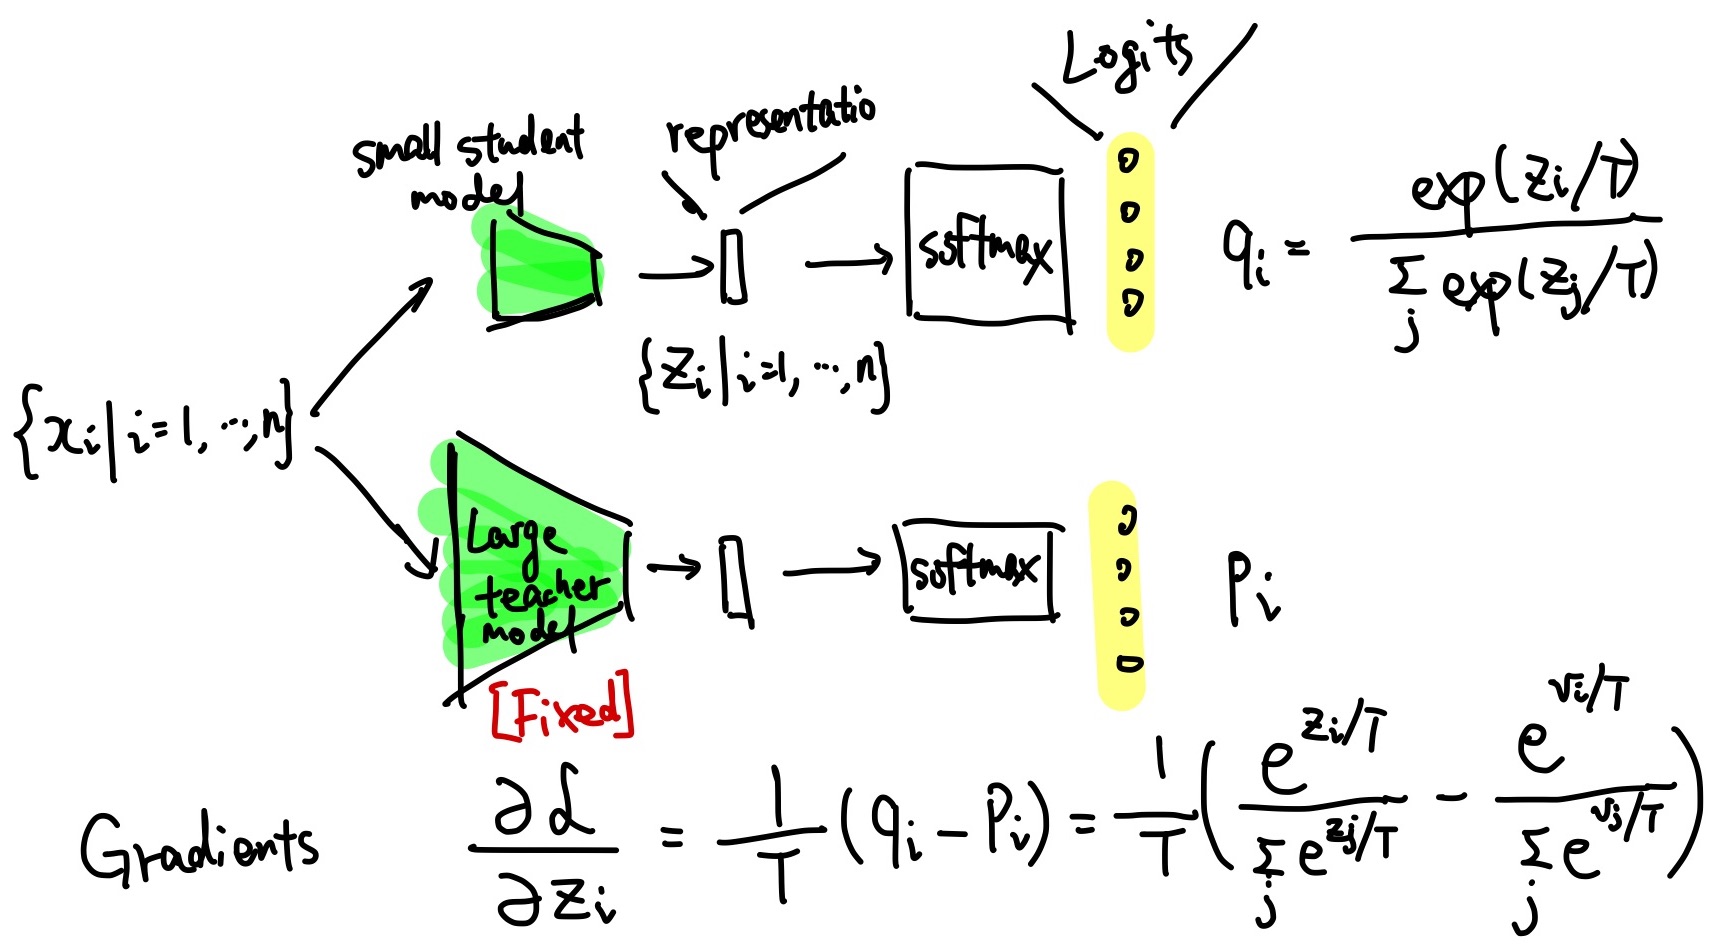 Logits
small student
model
representatio
softmax
qᵢ = exp(zᵢ/T) / Σⱼ exp(zⱼ/T)
{zᵢ | i=1, ..., n}
{xᵢ | i=1, ..., n}
Large
teacher
model
softmax
Pᵢ
[Fixed]
Gradients ∂ℒ/∂zᵢ = 1/T (qᵢ − Pᵢ) = 1/T ( e^{zᵢ/T} / Σⱼ e^{zⱼ/T} − e^{vᵢ/T} / Σⱼ e^{vⱼ/T} )